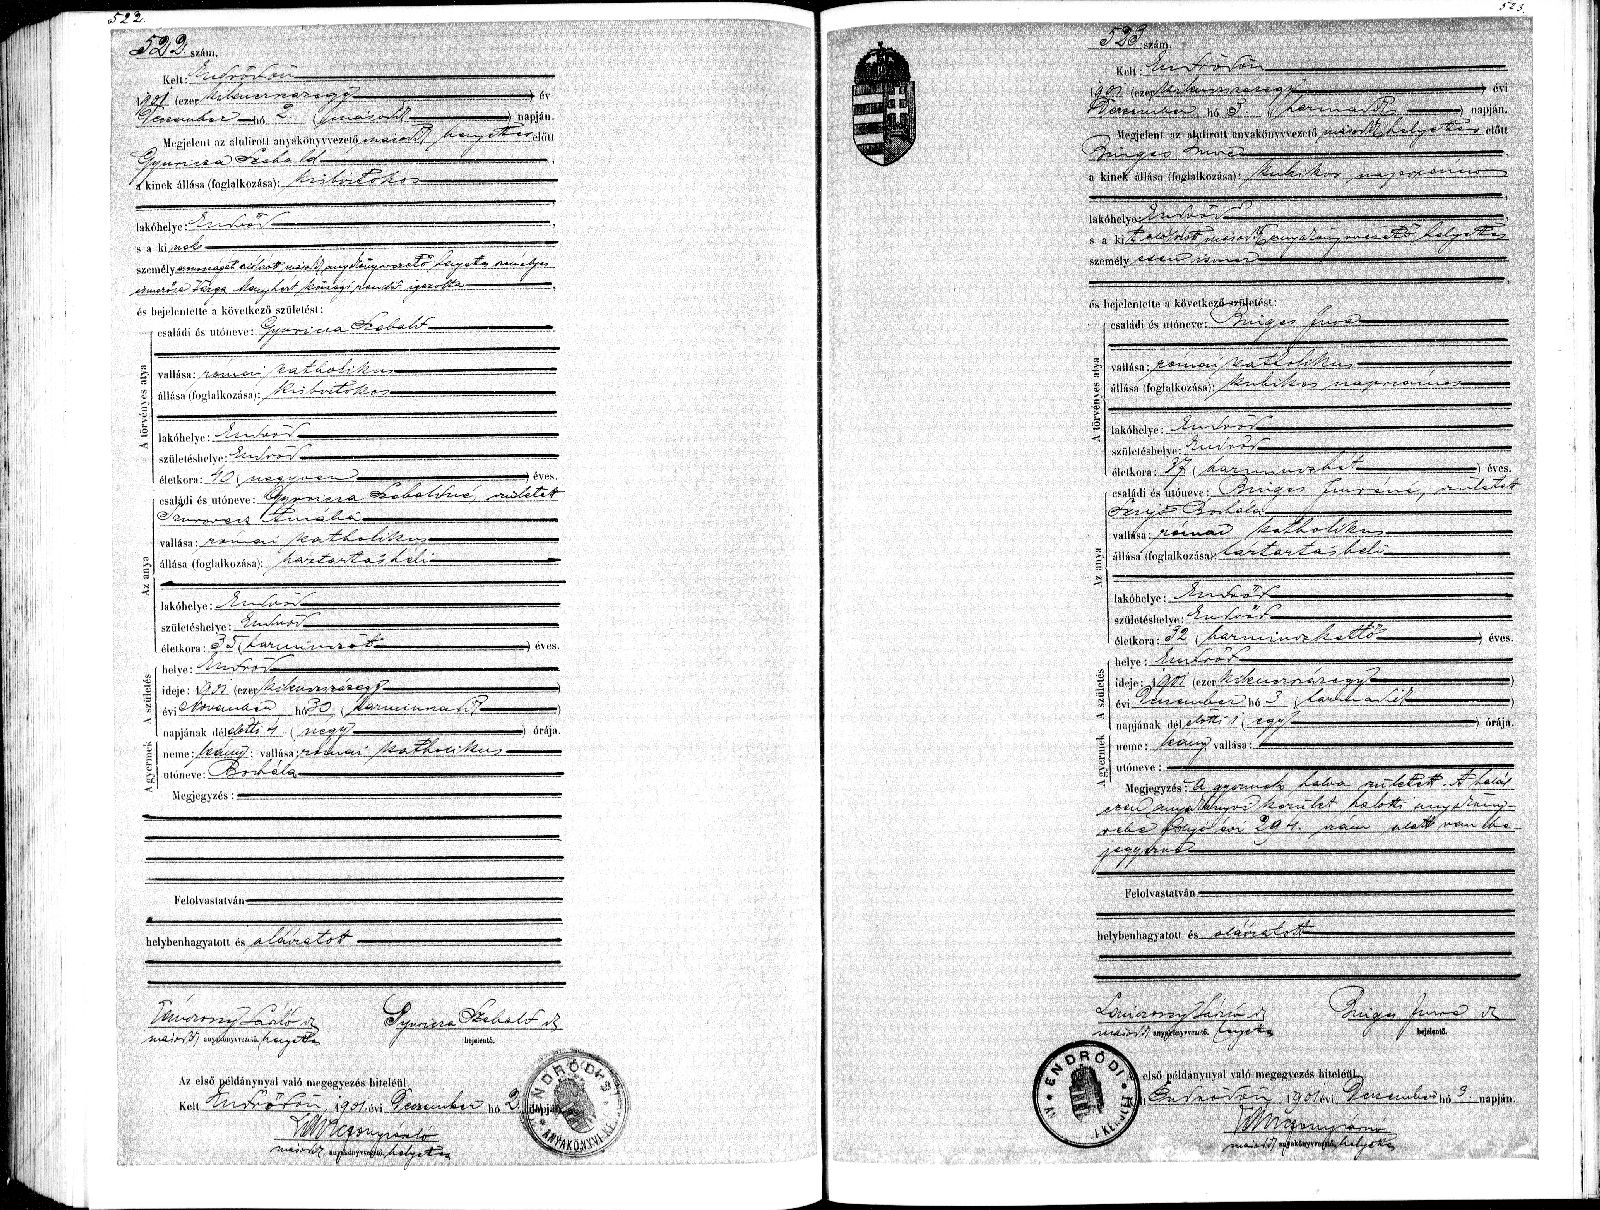 522.
522. szám.
Kelt: Endrődön
1901 (ezerkilencszázegy) év
December hó 2. (második) napján.
Megjelent az alulirott anyakönyvvezető másod helyettes előtt
Gyuricza Szebald
a kinek állása (foglalkozása):
lakóhelye: Endrőd
s a kinek
személyazonosságát aláírott másod anyakönyvvezető helyettes személyes
ismerőse Varga községi rendőr igazolta
és bejelentette a következő születést:
A törvényes atya
családi és utóneve: Gyuricza Szebald
vallása: római katholikus
állása (foglalkozása):
lakóhelye: Endrőd
születéshelye: Endrőd
életkora: 40 (negyven) éves.
Az anya
családi és utóneve: Gyuricza Szebaldné, született
vallása: római katholikus
állása (foglalkozása): háztartásbeli
lakóhelye: Endrőd
születéshelye: Endrőd
életkora: 35 (harminczöt) éves.
A születés
helye: Endrőd
ideje: 1901 (ezerkilenczszázegy)
évi November hó 30 (harminczadik)
napjának délelőtti 4 (négy) órája.
A gyermek
neme: leány; vallása: római katholikus
utóneve: Borbála
Megjegyzés:
Felolvastatván
helybenhagyatott és aláíratott
másod anyakönyvvezető helyettes
Gyuricza Szebald
bejelentő.
Az első példánynyal való megegyezés hiteléül.
Kelt Endrődön, 1901 évi December hó 2. napján.
másod anyakönyvvezető helyettes
ENDRŐDI
ANYAKÖNYVI
523.
523 szám.
Kelt: Endrődön
1901 (ezerkilenczszázegy) évi
December hó 3 (harmadik) napján.
Megjelent az alulirott anyakönyvvezető másod helyettes előtt
Búzgas Imre
a kinek állása (foglalkozása): kubikos napszámos
lakóhelye: Endrőd
s a kit aláírott másod anyakönyvvezető helyettes
személyesen ismer
és bejelentette a következő születést:
A törvényes atya
családi és utóneve: Imre
vallása: római katholikus
állása (foglalkozása): kubikos napszámos
lakóhelye: Endrőd
születéshelye: Endrőd
életkora: 37 (harminczhét) éves.
Az anya
családi és utóneve: Imréné, született
Borbála
vallása: római katholikus
állása (foglalkozása): háztartásbeli
lakóhelye: Endrőd
születéshelye: Endrőd
életkora: 32 (harminczkettő) éves.
A születés
helye: Endrőd
ideje: 1901 (ezerkilenczszázegy)
évi December hó 3 (harmadik)
napjának délelőtti 1 (egy) órája.
A gyermek
neme: leány; vallása:
utóneve:
Megjegyzés: A gyermek halva született. A halál
ezen anyakönyvi kerület halotti anyaköny-
vébe folyó évi 294. szám alatt van be-
jegyezve
Felolvastatván
helybenhagyatott és aláíratott
másod anyakönyvvezető helyettes
Imre
bejelentő.
első példánynyal való megegyezés hiteléül.
Endrődön, 1901 évi December hó 3 napján.
másod anyakönyvvezető helyettes
ENDRŐDI